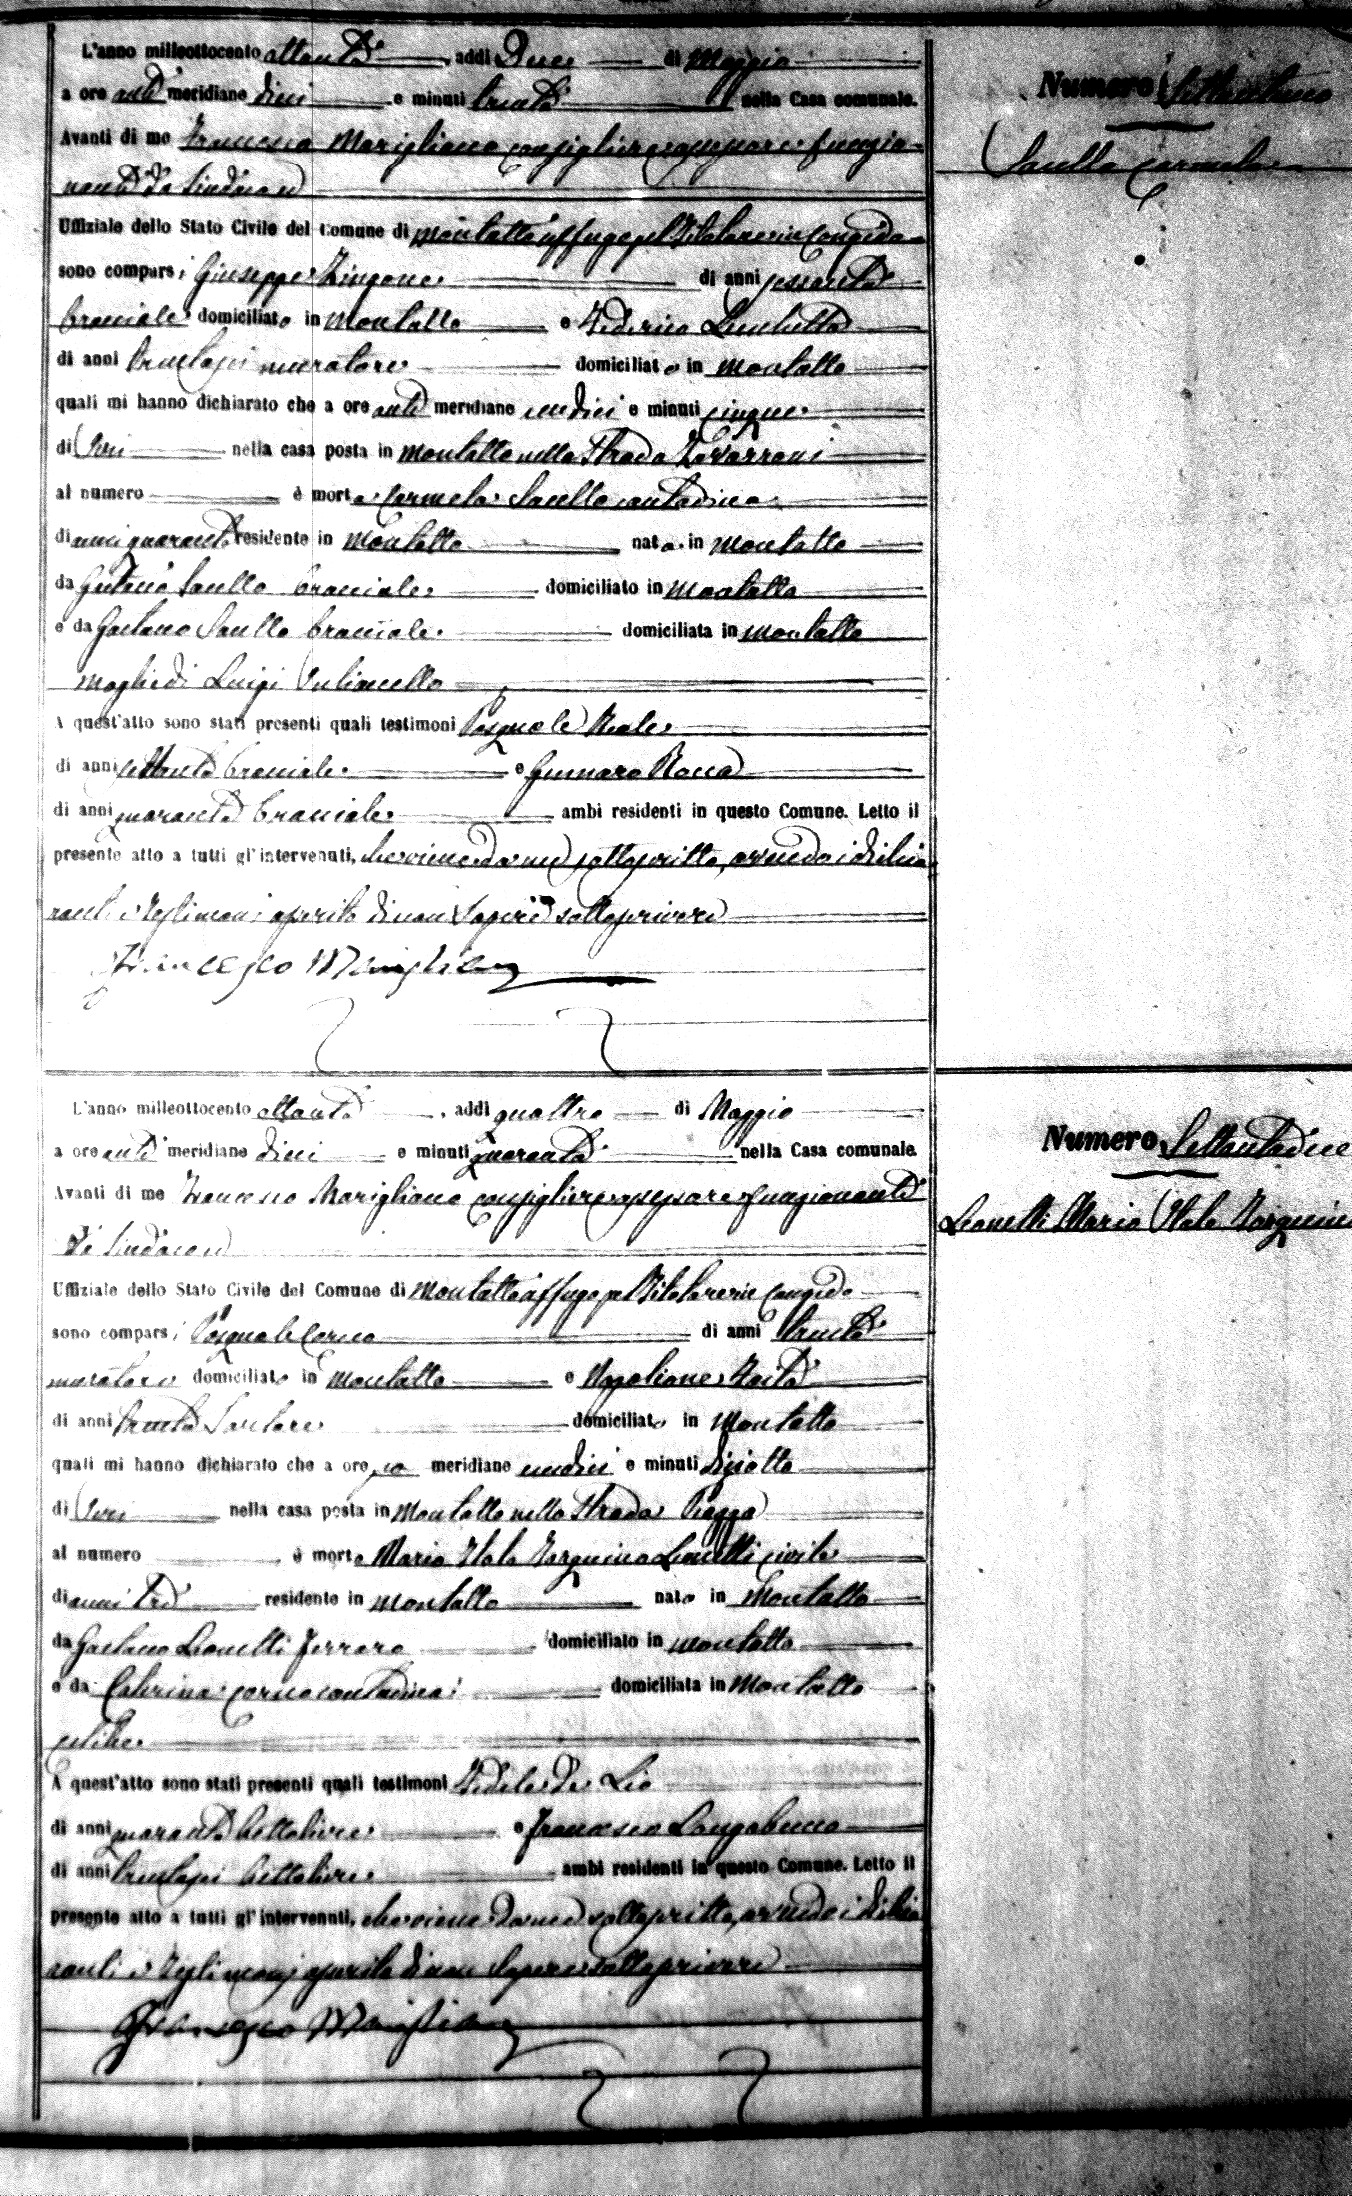 L'anno milleottocento ottanta, addì Due di Maggio
a ore anti meridiane dieci e minuti trenta nella Casa comunale.
Avanti di me Francesco Marigliano consigliere assessore funzio-
nante da Sindaco
Uffiziale dello Stato Civile del Comune di Montalto Uffugo pel Titolare in Congedo
sono comparsi Giuseppe Zingone di anni sessanta
bracciale domiciliato in Montalto e Federico
di anni trentasei muratore domiciliato in Montalto
quali mi hanno dichiarato che a ore anti meridiane undici e minuti cinque
di Ieri nella casa posta in Montalto nella Strada
al numero è morta Carmela Saullo contadina
di anni quaranta residente in Montalto nata in Montalto
da Saullo bracciale domiciliato in Montalto
e da Gaetano Saullo bracciale domiciliata in Montalto
moglie di Luigi
A quest'atto sono stati presenti quali testimoni Pasquale Reale
di anni settanta bracciale e Gennaro Rocca
di anni quaranta bracciale ambi residenti in questo Comune. Letto il
presente atto a tutti gl'intervenuti, che viene da me sottoscritto, avendo i dichia
ranti e testimoni asserito di non sapere sottoscrivere
Francesco Marigliano
Numero Settantuno
Saullo Carmela
L'anno milleottocento ottanta, addì quattro di Maggio
a ore anti meridiane dieci e minuti quaranta nella Casa comunale.
Avanti di me Francesco Marigliano consigliere assessore funzionante
da Sindaco
Uffiziale dello Stato Civile del Comune di Montalto Uffugo pel Titolare in Congedo
sono comparsi Pasquale di anni trenta
muratore domiciliato in Montalto e Napoleone
di anni trenta Sartore domiciliato in Montalto
quali mi hanno dichiarato che a ore meridiane undici e minuti diciotto
di Ieri nella casa posta in Montalto nella Strada Piazza
al numero è morto Mario Italo Tarquinio Leonetti civile
di anni tre residente in Montalto nato in Montalto
da Gaetano Leonetti domiciliato in Montalto
e da Caterina contadina domiciliata in Montalto
celibe
A quest'atto sono stati presenti quali testimoni Fedele De Lio
di anni quaranta bettoliere e Francesco Longobucco
di anni trentasei bettoliere ambi residenti in questo Comune. Letto il
presente atto a tutti gl'intervenuti, che viene da me sottoscritto, avendo i dichia
ranti e testimoni asserito di non sapere sottoscrivere
Francesco Marigliano
Numero Settantadue
Leonetti Mario Italo